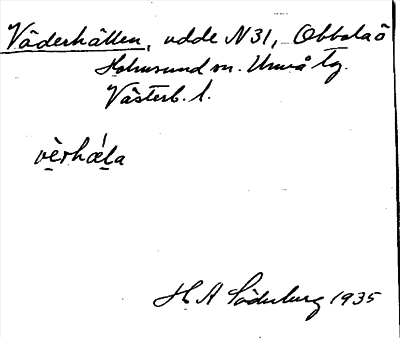 Väderhällen, udde N31, Obbolaö
Holmsund sn. Umeå tg.
Västerb. l.
vèrhǽla
H A Söderberg 1935